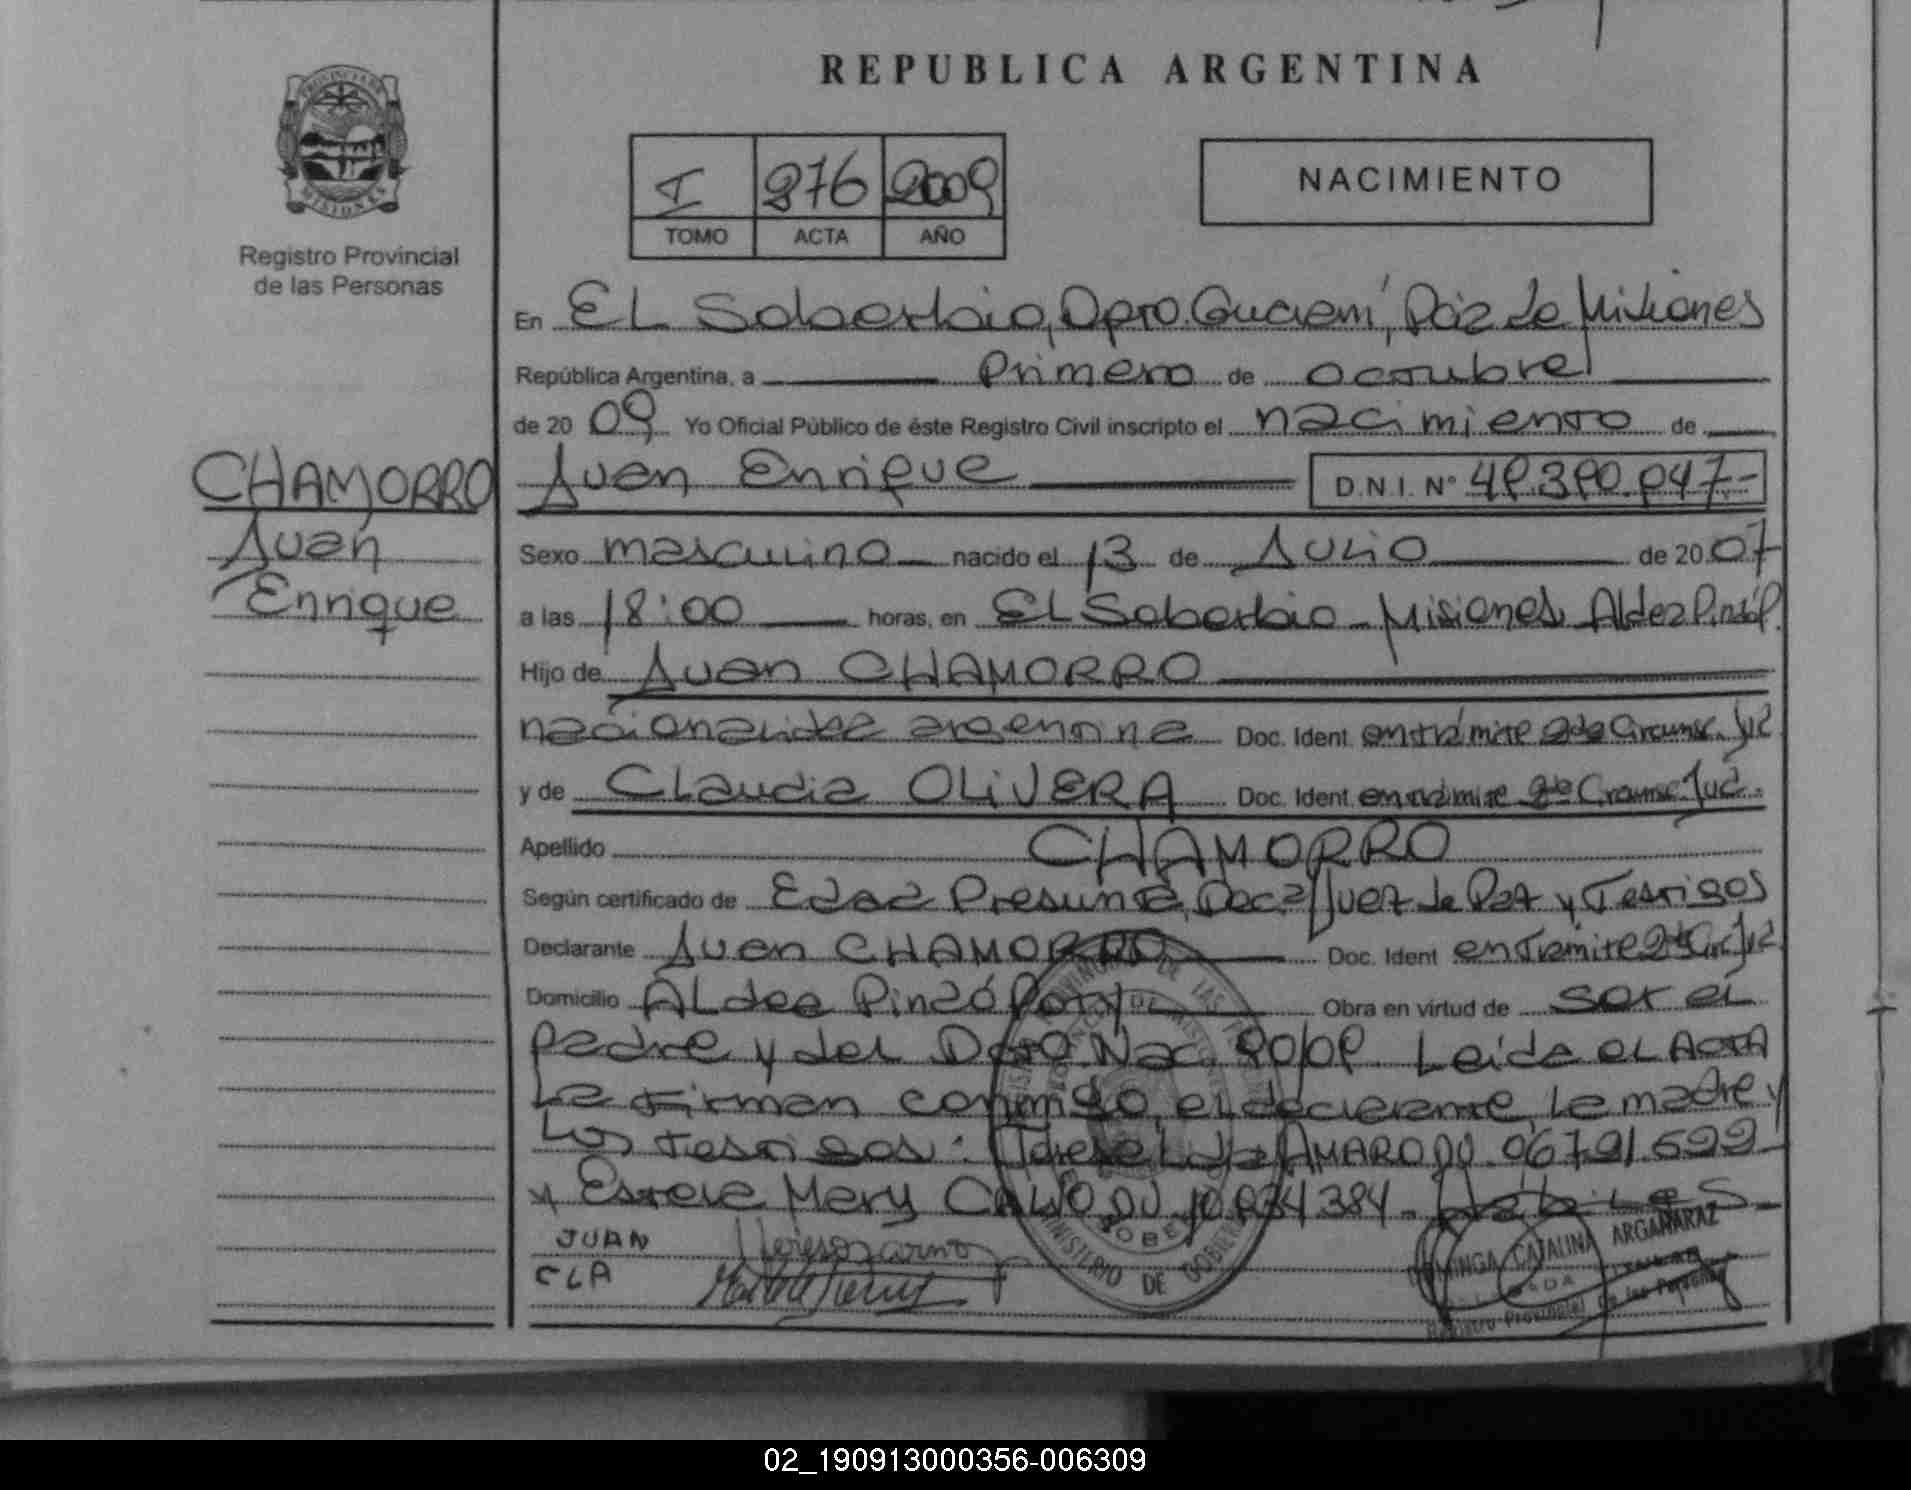 REPUBLICA ARGENTINA
PROVINCIA DE
MISIONES
Registro Provincial
de las Personas
I 276 2009
TOMO ACTA AÑO
NACIMIENTO
En EL Soberbio, Dpto. Guaraní, Pcia de Misiones
República Argentina, a primero de octubre
de 2009 Yo Oficial Público de éste Registro Civil inscripto el nacimiento de
CHAMORRO
Juan
Enrique
Juan Enrique D.N.I. Nº
Sexo masculino nacido el 13 de Julio de 2007
a las 18:00 horas, en EL Soberbio - Misiones, Aldea
Hijo de Juan CHAMORRO
nacionalidad argentina Doc. Ident. en trámite 2da Circunsc. Jud
y de Claudia OLIVERA Doc. Ident en trámite 2da Circunsc. Jud.
Apellido CHAMORRO
Según certificado de Edad Presunta, Dec. Juez de Paz y Testigos
Declarante Juan CHAMORRO Doc. Ident en Trámite 2da Circ Jud
Domicilio ALdea Obra en virtud de ser el
padre y del Dcto. Nac. Leida el ACTA
La firman conmigo, el declarante, la madre y
Los testigos: AMARO DU
y Estela Mary CALVO DU - Hábiles -
JUAN
CLA
MINISTERIO DE GOBIERNO
DOMINGA CATALINA ARGAÑARAZ
Registro Provincial de las Personas
02_190913000356-006309